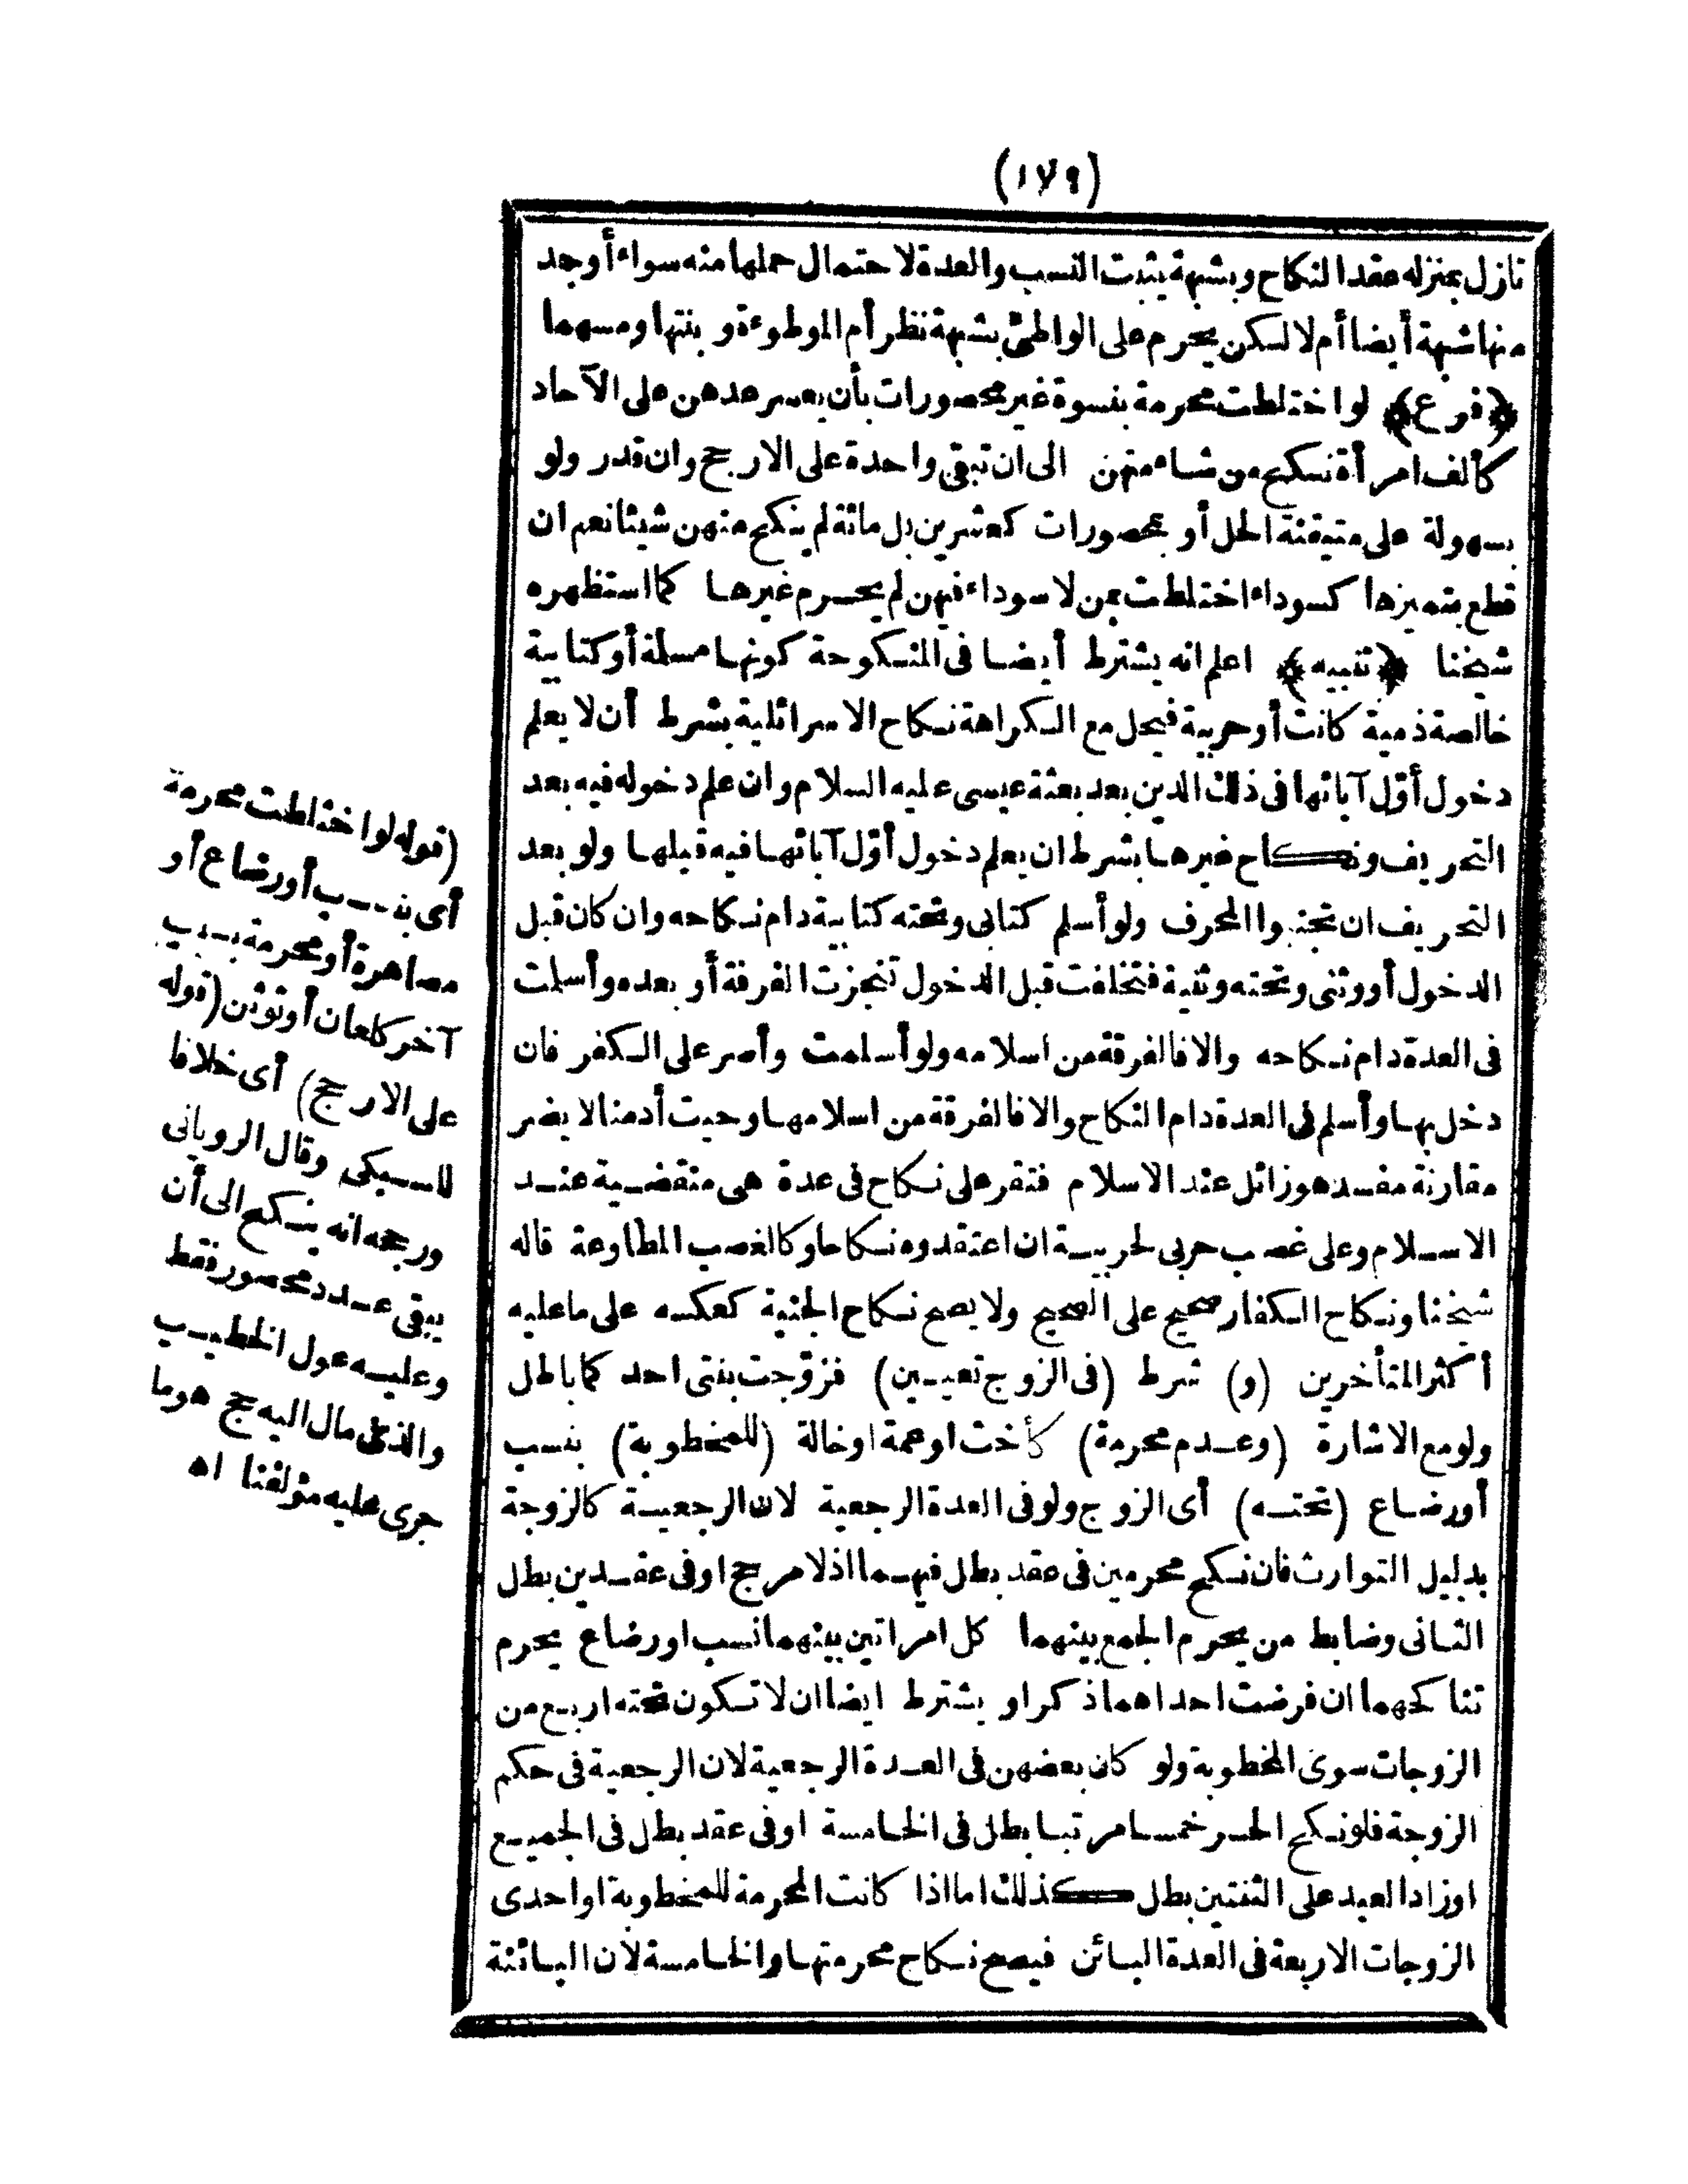 (١٧٩)
نازل بمنزله عقد النكاح وبشبهة يثبت النسب والعدة لاحتمال حملها منه سواء أوجد
منها شبهة أيضا أم لا لكن يحرم على الواطئ بشبهة نظر أم الموطوءة وبنتها ومسهما
﴿فرع﴾ لو اختلطت محرمة بنسوة غير محصورات بأن يعسر عدهن على الآحاد
كألف امرأة نكح من شاء منهن الى ان تبقى واحدة على الارجح وان قدر ولو
بسهولة على متيقنة الحل أو بمحصورات كعشرين بل مائة لم ينكح منهن شيئا نعم ان
قطع بتميزها كسوداء اختلطت بمن لا سوداء فيهن لم يحرم غيرها كما استظهره
شيخنا ﴿تنبيه﴾ اعلم انه يشترط أيضا فى المنكوحة كونها مسلمة أو كتابية
خالصة ذمية كانت أو حربية فيحل مع الكراهة نكاح الاسرائلية بشرط أن لا يعلم
دخول أوّل آبائها فى ذلك الدين بعد بعثة عيسى عليه السلام وان علم دخوله فيه بعد
التحريف ونكاح غيرها بشرط ان يعلم دخول أوّل آبائها فيه قبلها ولو بعد
التحريف ان تجنبوا المحرف ولو أسلم كتابى وتحته كتابية دام نكاحه وان كان قبل
الدخول أو وثنى وتحته وثنية فتخلفت قبل الدخول تنجزت الفرقة أو بعده وأسلمت
فى العدة دام نكاحه والا فالفرقة من اسلامه ولو أسلمت وأصر على الكفر فان
دخل بها وأسلم فى العدة دام النكاح والا فالفرقة من اسلامها وحيث أدمنا لا يضر
مقارنة مفسد هو زائل عند الاسلام فتقر على نكاح فى عدة هى منقضية عند
الاسلام وعلى غصب حربى لحربية ان اعتقدوه نكاحا وكالغصب المطاوعة قاله
شيخنا ونكاح الكفار صحيح على الصحيح ولا يصح نكاح الجنية كعكسه على ما عليه
أكثر المتأخرين (و) شرط (فى الزوج تعيين) فزوّجت بنتى احد كما باطل
ولو مع الاشارة (وعدم محرمة) كأخت او عمة او خالة (للمخطوبة) بنسب
أو رضاع (تحته) أى الزوج ولو فى العدة الرجعية لان الرجعية كالزوجة
بدليل التوارث فان نكح محرمين فى عقد بطل فيهما اذ لا مرجح او فى عقدين بطل
الثانى وضابط من يحرم الجمع بينهما كل امراتين بينهما نسب او رضاع يحرم
تناكحهما ان فرضت احداهما ذكرا ويشترط ايضا ان لا تكون تحته اربع من
الزوجات سوى المخطوبة ولو كان بعضهن فى العدة الرجعية لان الرجعية فى حكم
الزوجة فلو نكح الحر خمسا مرتبا بطل فى الخامسة او فى عقد بطل فى الجميع
او زاد العبد على الثنتين بطل كذلك اما اذا كانت المحرمة للمخطوبة او احدى
الزوجات الاربعة فى العدة البائن فيصح نكاح محرمتها والخامسة لان البائنة
(قوله لو اختلطت محرمة
أى بنسب أو رضاع أو
مصاهرة أو محرمة بسبب
آخر كلعان أو توثن (قوله
على الارجح) أى خلافا
للسبكى وقال الرويانى
ورجحه انه ينكح الى أن
يبقى عدد محصور فقط
وعليه عول الخطيب
والذى مال اليه حج هو ما
جرى عليه مؤلفنا اه